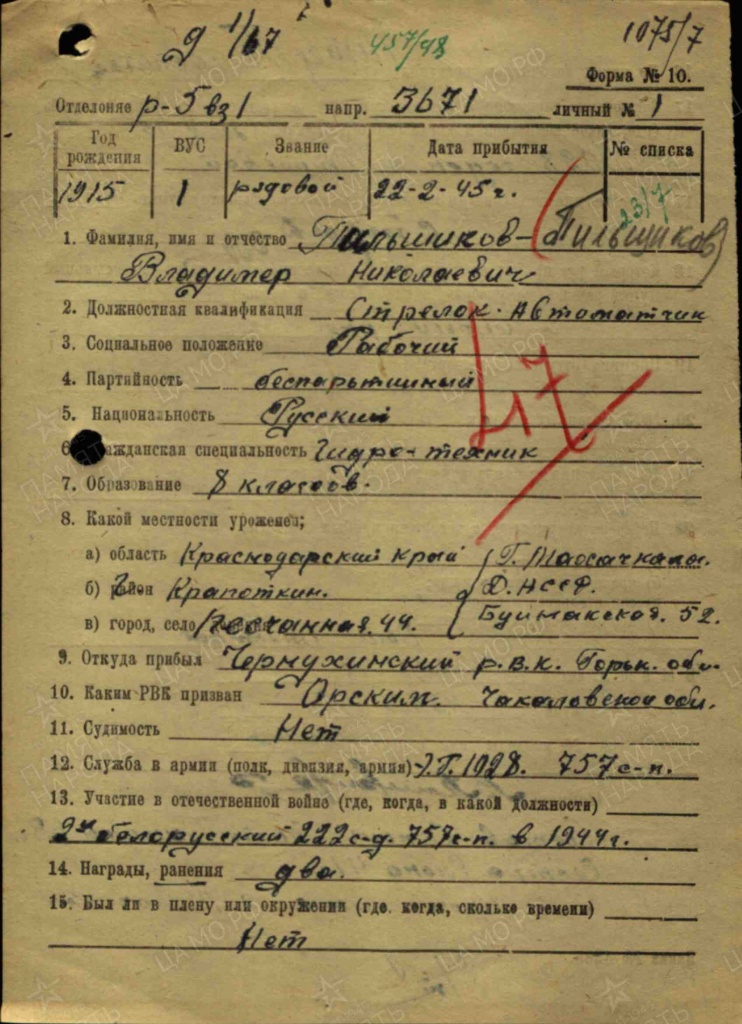 9 1/67 457/48 1075/7
Форма № 10.
Отделение р-5вз1 напр. 3671 личный № 1
Год рождения ВУС Звание Дата прибытия № списка
1915 1 рядовой 22-2-45г. 23/7
1. Фамилия, имя и отчество Пилышиков-(Пильщиков)
Владимер Николаевич
2. Должностная квалификация Стрелок-Автоматчик
3. Социальное положение Рабочий
47
4. Партийность беспартийный
5. Национальность Русский
6. Гражданская специальность Гидро-техник
7. Образование 8 классов.
8. Какой местности уроженец;
а) область Краснодарский край Г.
б) район Крапоткин. Д.АССР.
в) город, село Песчанная.44. Буйнакская. 52.
9. Откуда прибыл Чернухинский р.в.к. Горьк. обл.
10. Каким РВК призван Орским. Чакаловской обл.
11. Судимость Нет
12. Служба в армии (полк, дивизия, армия) 757 с-п.
13. Участие в отечественной войне (где, когда, в какой должности)
2й белорусский 222 с-д. 757 с-п. в 1944г.
14. Награды, ранения два.
15. Был ли в плену или окружении (где, когда, сколько времени)
Нет